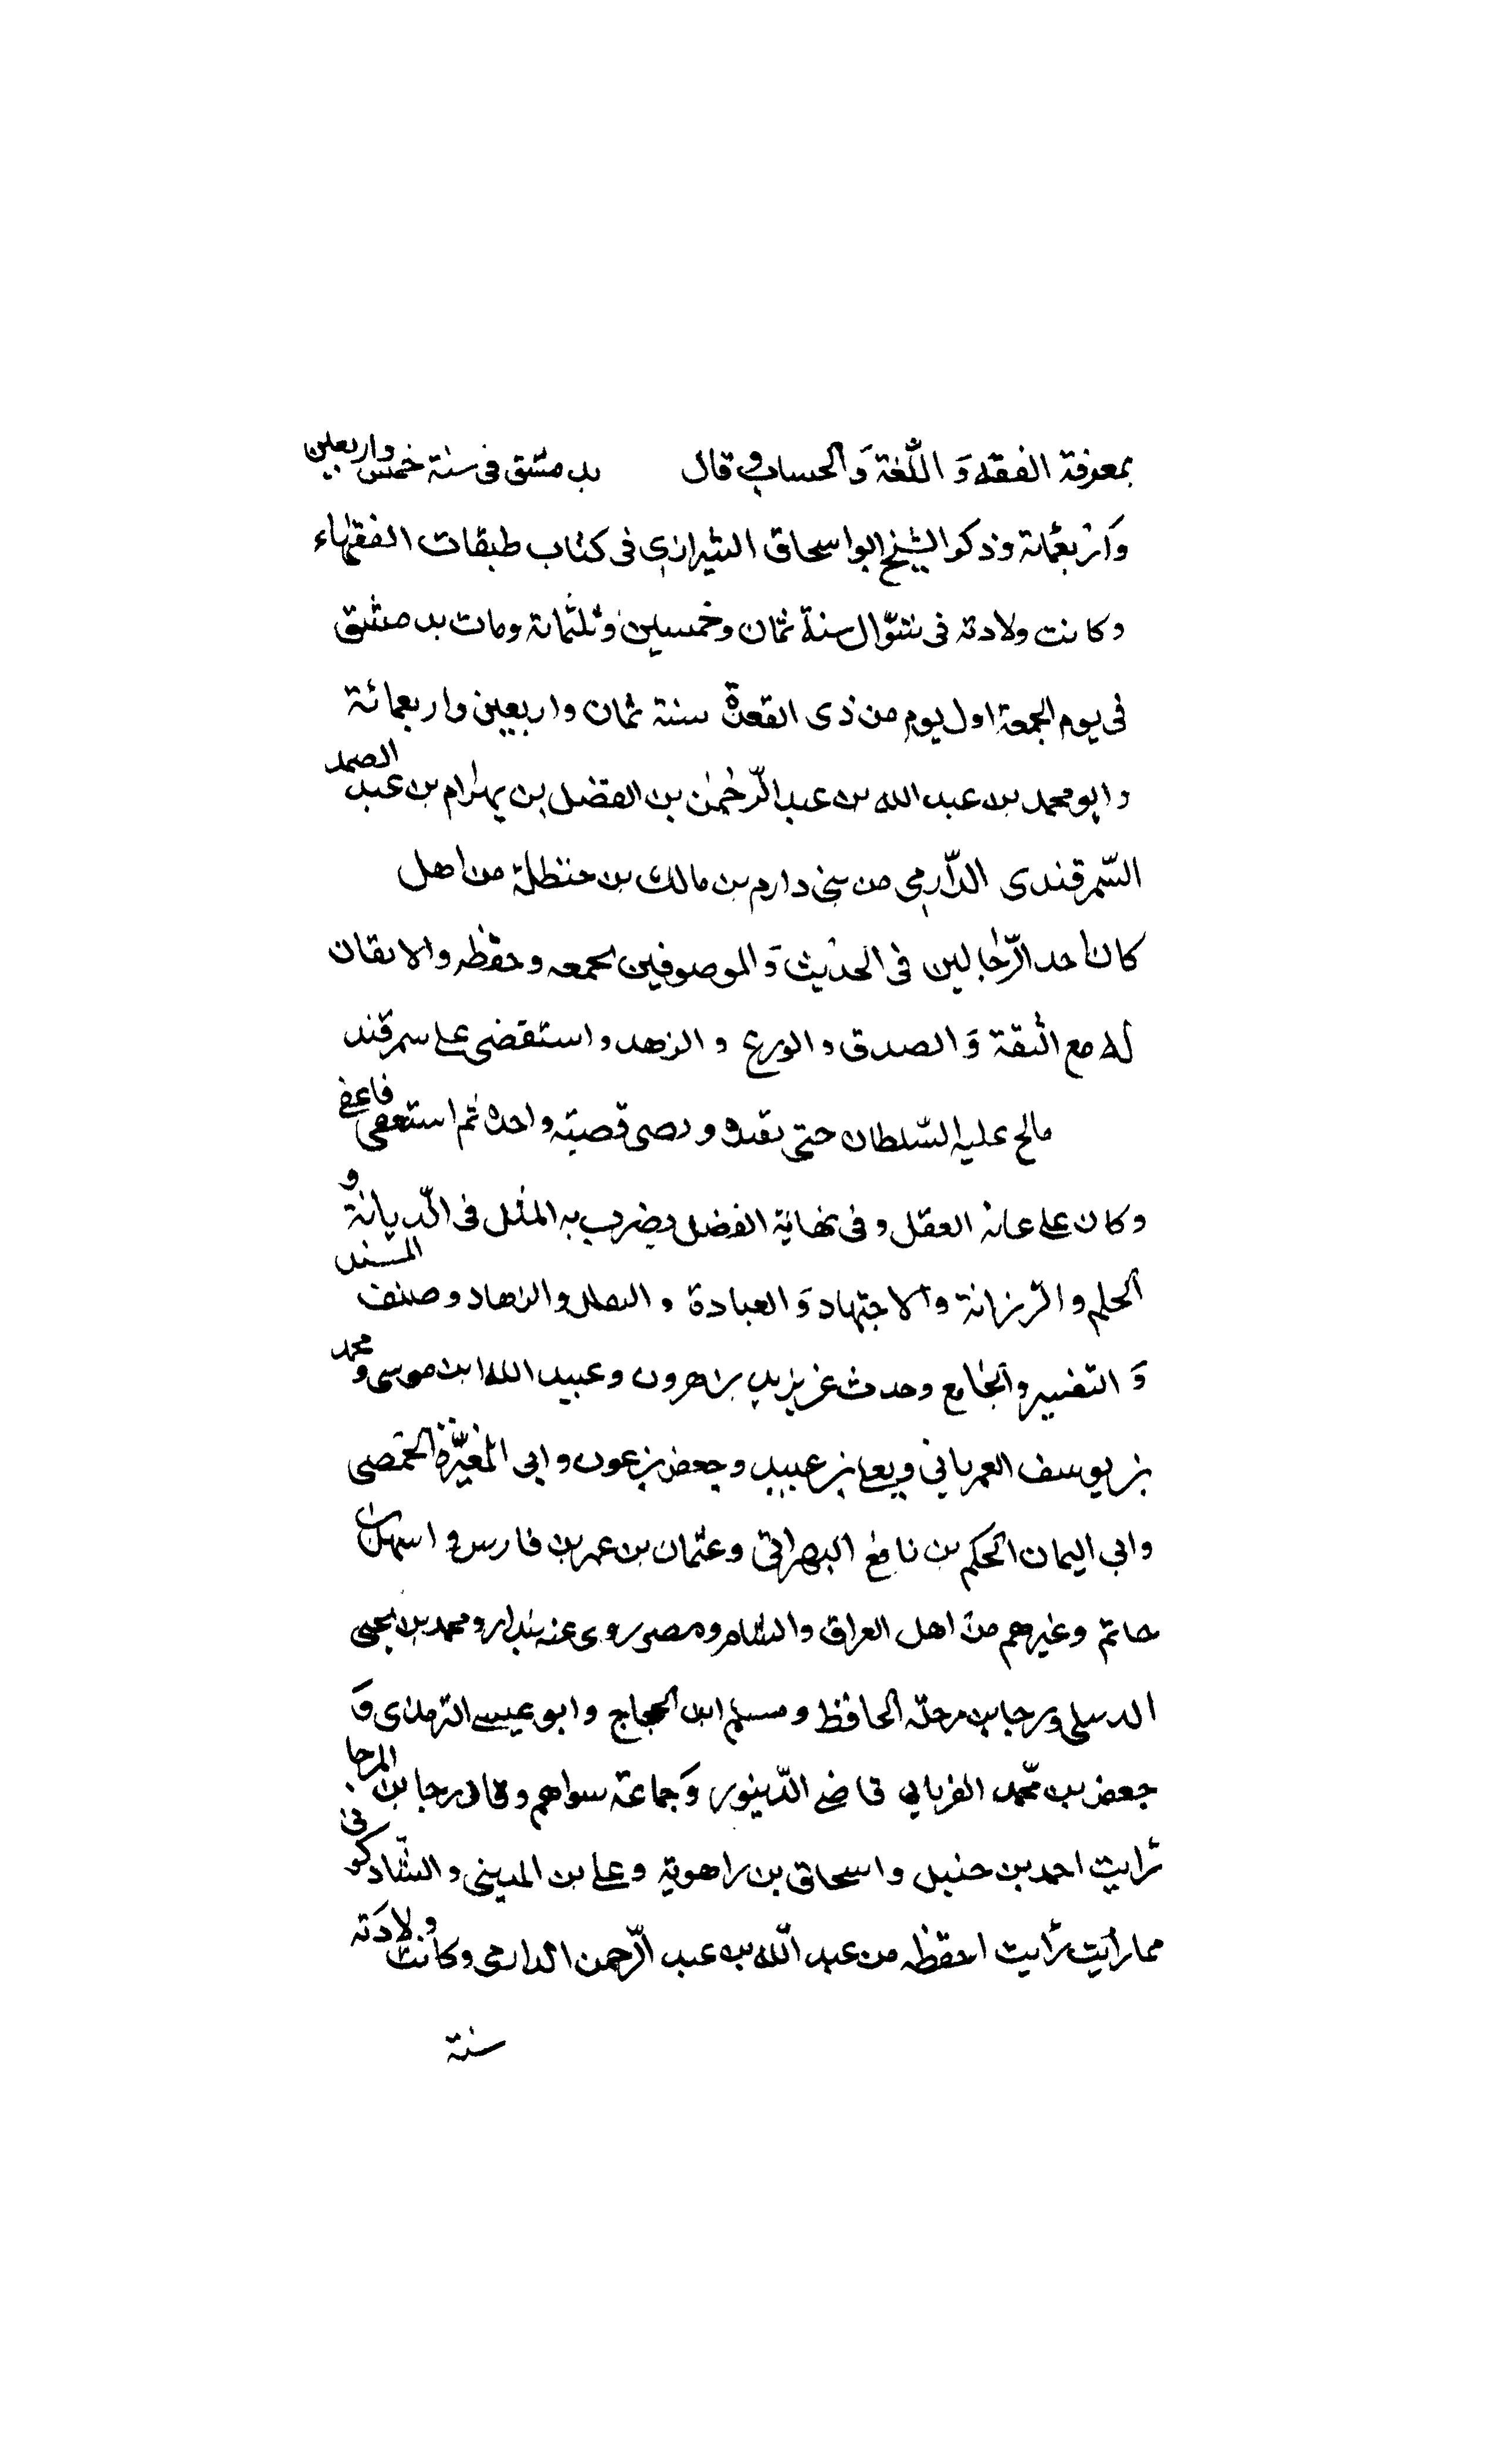 بمعرفة الفقه وَ اللّغة وَ الحساب و قال بدمشق فى سنة خمس واربعين
وَاربعمائة وذكر الشيخ ابواسحاق الشيرازى فى كتاب طبقات الفقهاء
وكانت ولادته فى شوّال سنة ثمان وخمسين وثلثمائة ومات بدمشق
فى يوم الجمعة اول يوم من ذى القعدة سنة ثمان واربعين واربعمائة
وابو محمد بن عبد الله بن عبد الرّحمٰن بن الفضل بن بهرام بن عبد الصمد
السّمرقندى الدّارمى من بنى دارم بن مالك بن حنظلة من اهل
كان احد الرّحالين فى الحديث وَ الموصوفين بحمعه وحفظه والاتقان
له مع الثقة وَ الصدق و الورع و الزهد و استقضى على سمرقند
فالح عليه السّلطان حتى نقده وقصى قصيته واحدة ثم استعفى فاعفى
وكان على غاية العقل و فى نهاية الفضل يضرب به المثل فى الدّيانة و
الحلم و الرزانة و الاجتهاد وَ العبادة و الزهاد و صنف المسند
وَ التفسير و الجامع وحدث عن يزيد بن هرون و عبيد الله ابن موسى و محمد
بن يوسف ويعلى بن عبيد وجعفر بن عون و ابى المغيّرة الحمصى
وابى اليمان الحكم بن نافع البهرانى وعثمان بن عمر بن فارس و اسهل بن
حاتم وغيرهم من اهل العراق والشام ومصر روى عنه بندار ومحمد بن يحيى
ورجا بن مرجّه الحافظ ومسلم ابن الحجاج و ابو عيسى الترمذى وَ
جعفر بن محّمد الفريابى قاضى الدّينور وَ جماعة سواهم وقال رجا بن المرجا
رَايت احمد بن حنبل واسحاق بن راهوية و على بن المدينى والشّاذكونى
فما رايت رَايت احفظ من عبد الله بن عبد الرّحمن الدارمى وكانت ولادَته
سنة